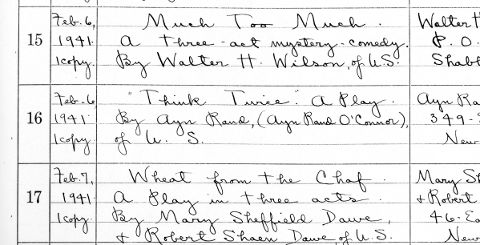 15 Feb. 6, Much Too Much. Walter H
1941 A three-act mystery-comedy. P. O.
1 copy. By Walter H. Wilson, of U.S. Shabb
16 Feb. 6 "Think Twice." A Play. Ayn Ra
1941 By Ayn Rand, (Ayn Rand O'Connor), 349-
1 copy. of U. S. New
17 Feb. 7, Wheat from the Chaf. Mary Sh
1941 A Play in three acts. & Robert
1 copy. By Mary Sheffield Dawe, 46-Ea
& Robert Shaen Dawe of U.S. New